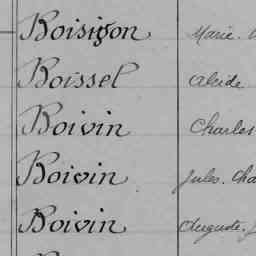 Boisigon Marie.
Boissel Alcide
Boivin Charles
Boivin Jules. Cha
Boivin Auguste. J